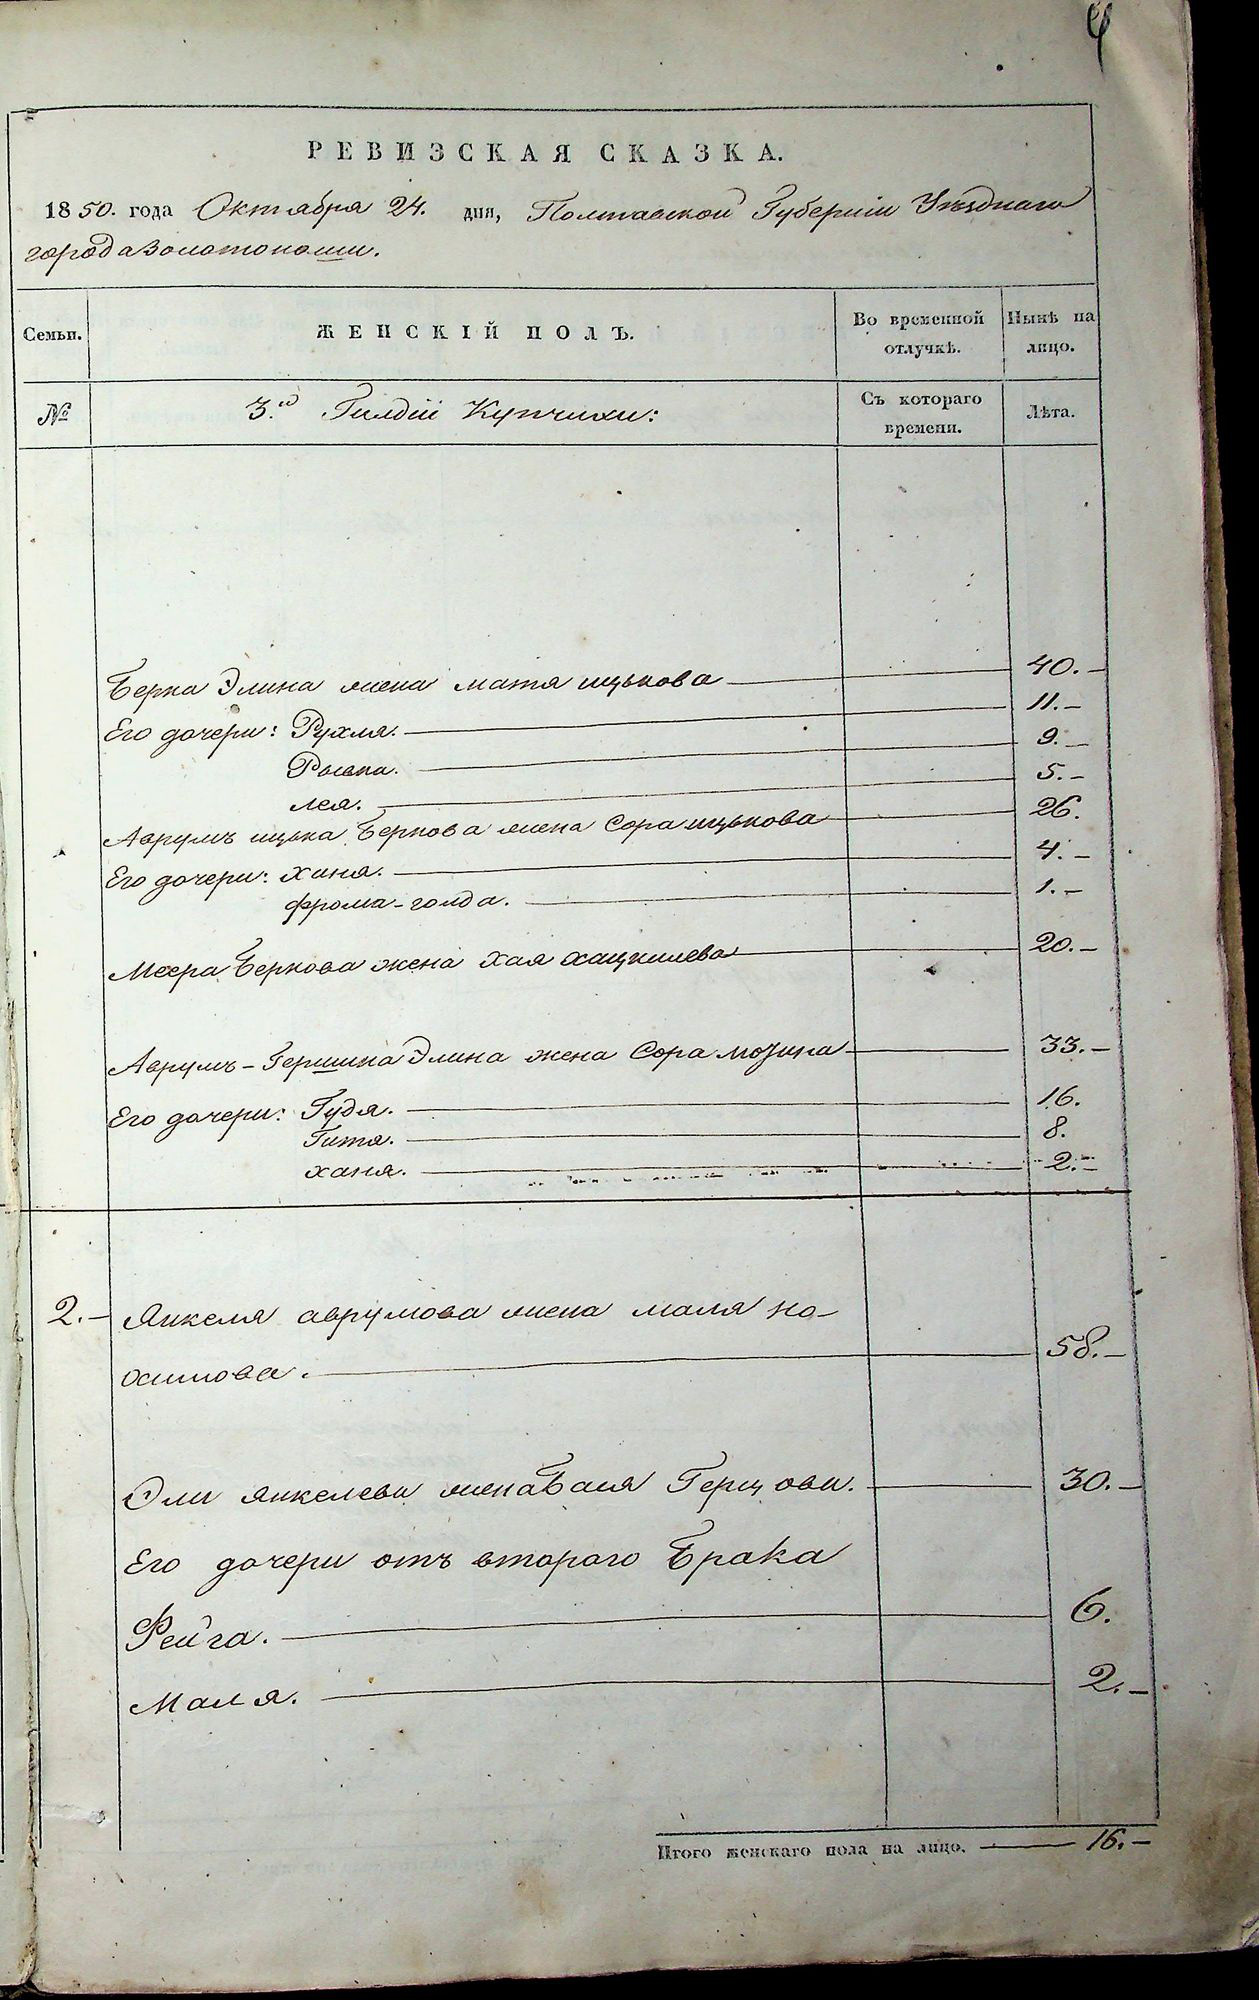 РЕВИЗСКАЯ СКАЗКА.
1850. года Октября 24. дня, Полтавской Губерніи Уѣзднаго
города Золотоноши.
Семьи.
ЖЕНСКІЙ ПОЛЪ.
Во временной отлучкѣ.
Нынѣ на лицо.
№
3.й Гилдіи Купчихи:
Съ котораго времени.
Лѣта.
Берка Элина жена матя ицькова 40.-
Его дочери: Рухля. 11.-
Рывка. 9.-
лея. 5.-
Аврумъ ицька Беркова жена Сора ицькова 26.
Его дочери: ханя. 4.-
фрома-голда. 1.-
Меера Беркова жена хая хацкилева 20.-
Аврумъ-Гершка Элина жена Сора мозина 33.-
Его дочери: Гудя. 16.
Гитя. 8.
ханя. 2.-
2.- Янкеля аврумова жена маля но-
охимова. 58.-
Эли янкелева жена Бася Герцова. 30.-
Его дочери отъ втораго Брака
Фейга. 6.
Маля. 2.-
Итого женскаго пола на лицо. 16.-